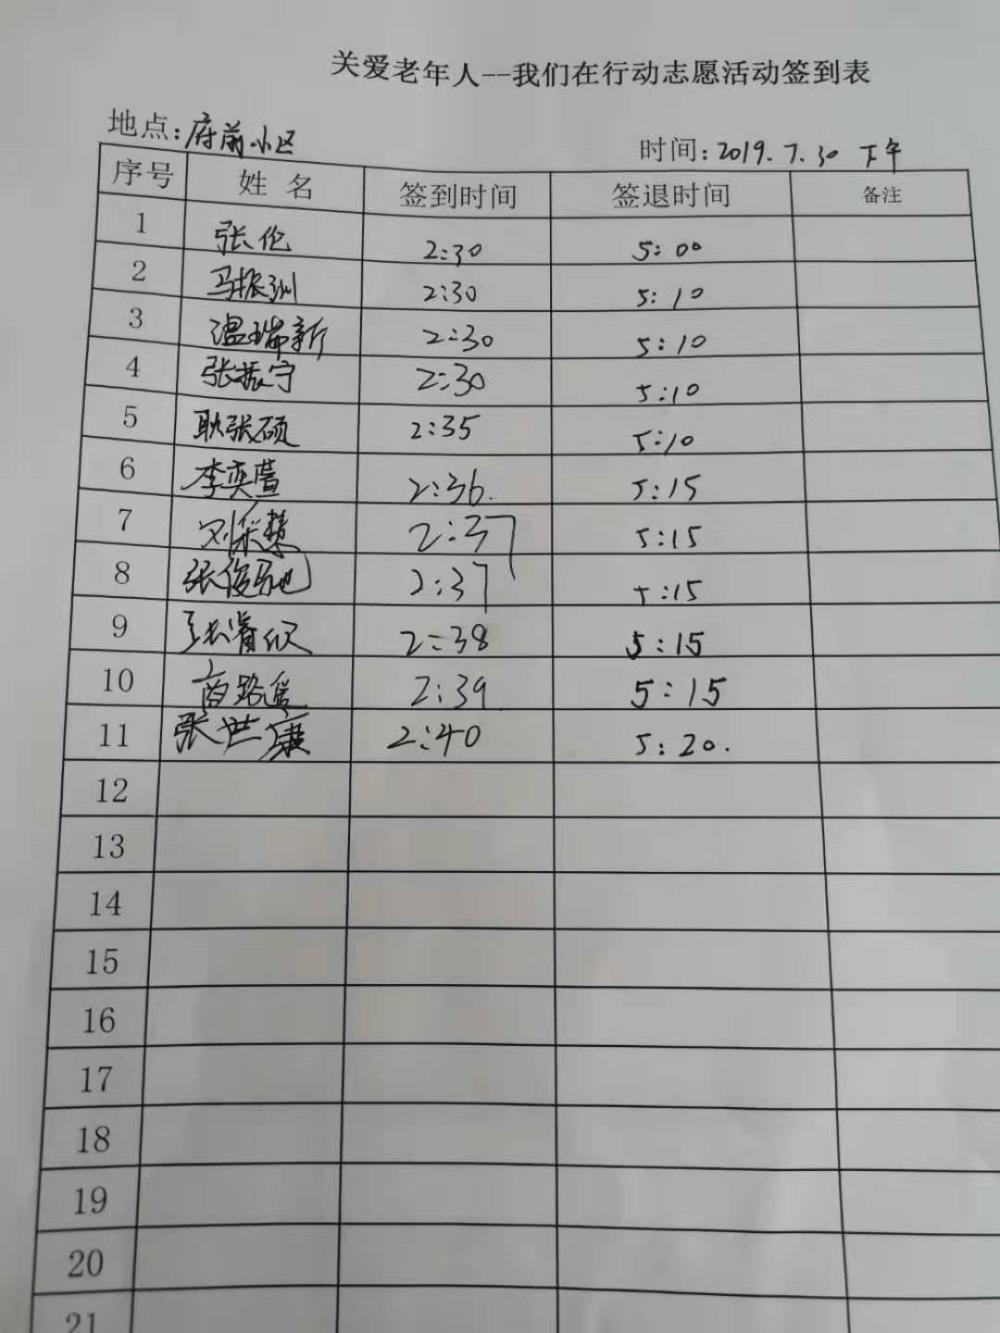 关爱老年人--我们在行动志愿活动签到表
地点:府前小区 时间:2019.7.30 下午
序号 姓 名 签到时间 签退时间 备注
1 张伦 2:30 5:00
2 马振洲 2:30 5:10
3 温瑞新 2:30 5:10
4 张振宁 2:30 5:10
5 耿张硕 2:35 5:10
6 李奕萱 2:36. 5:15
7 刘采慧 2:37 5:15
8 张俊驰 2:37 5:15
9 张睿欣 2:38 5:15
10 商路遥 2:39 5:15
11 张世康 2:40 5:20.
12
13
14
15
16
17
18
19
20
21